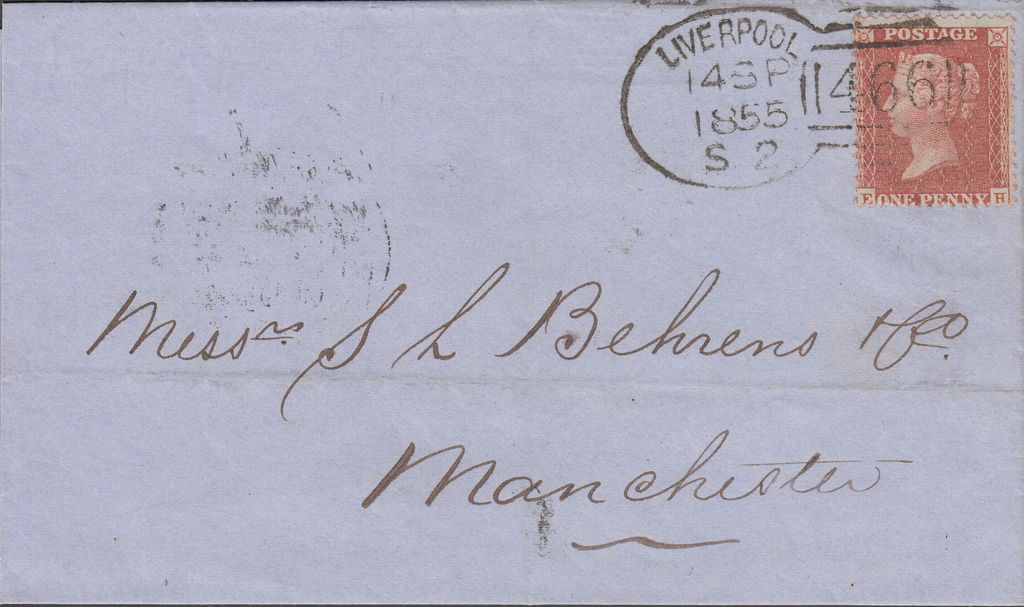 LIVERPOOL
14 SP
1855
S 2
466
POSTAGE
E ONE PENNY H
Messrs. S L Behrens & Co.
Manchester